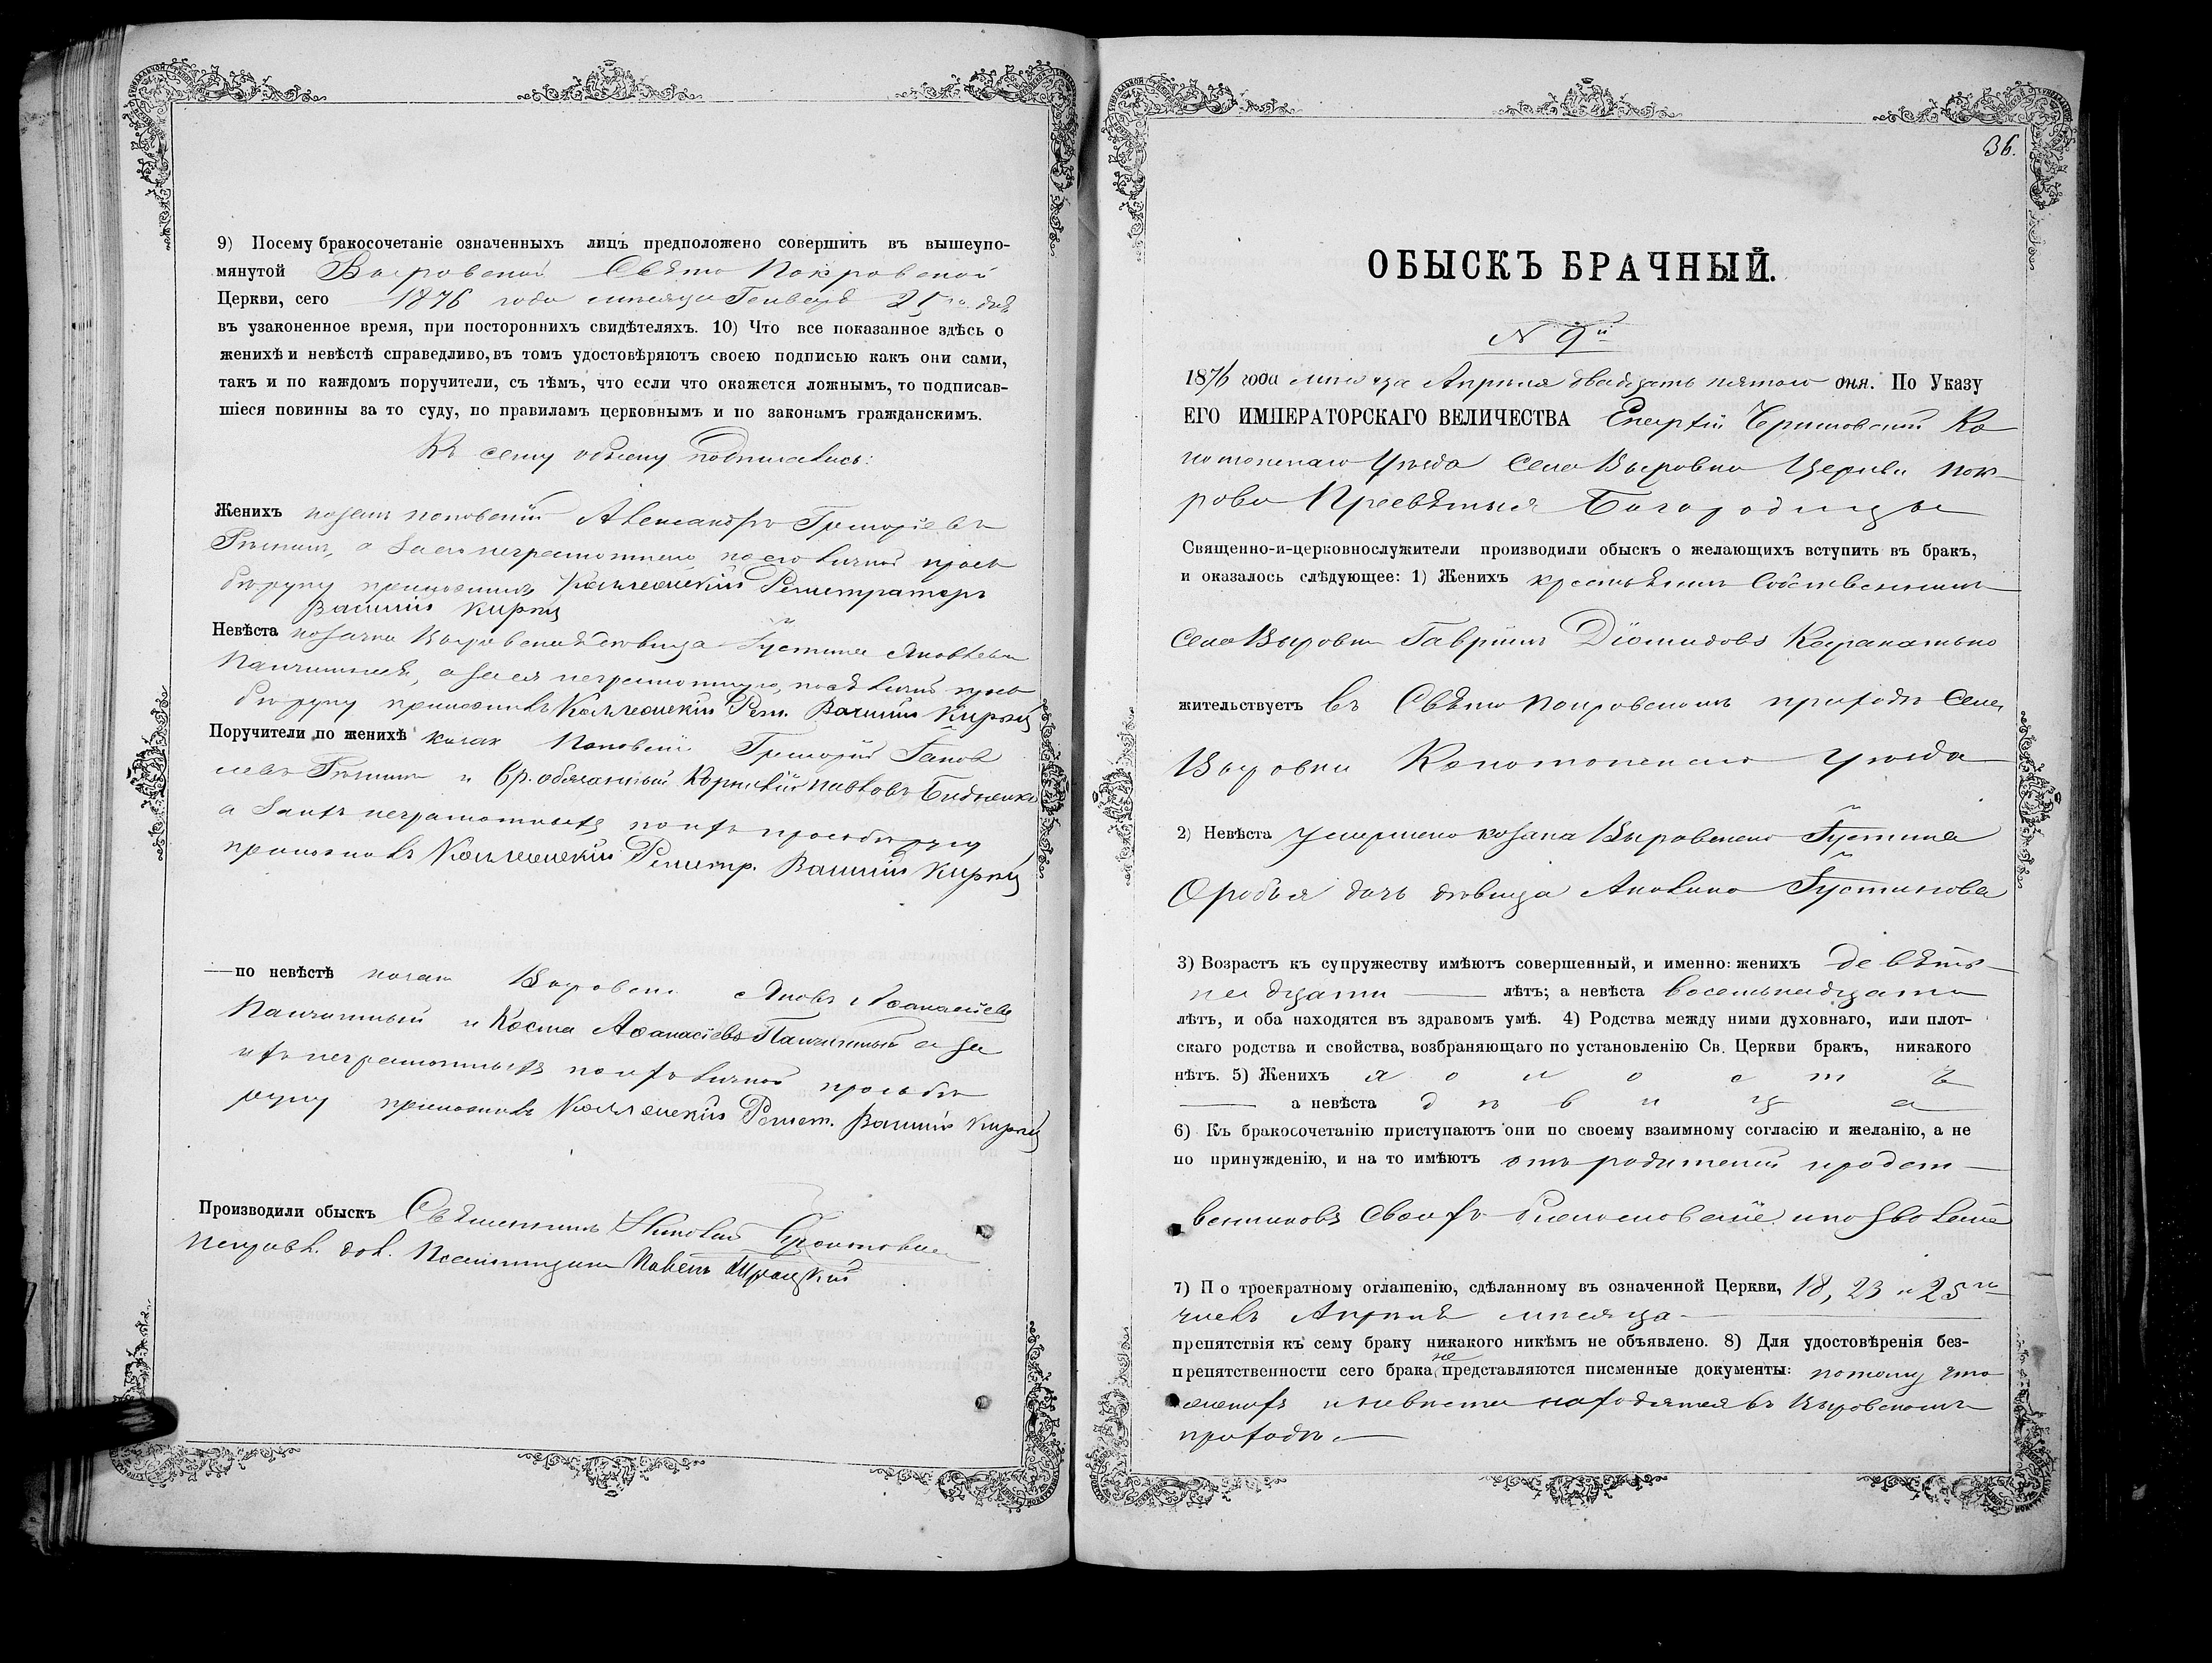 9) Посему бракосочетаніе означенныхъ лицъ предположено совершить въ вышеупо-
мянутой Выровской Свѣто Покровской
Церкви, сего 1876 года мѣсяца Генваря 25го дня
въ узаконенное время, при постороннихъ свидѣтеляхъ. 10) Что все показанное здѣсь о
женихѣ и невѣстѣ справедливо, въ томъ удостовѣряютъ своею подписью какъ они сами,
такъ и по каждомъ поручители, съ тѣмъ, что если что окажется ложнымъ, то подписав-
шіеся повинны за то суду, по правиламъ церковнымъ и по законамъ гражданскимъ.
Къ сему обыску подписались:
Женихъ козакъ поповскій Александръ Григоріевъ
а за его неграмотнаго по его личной прось
бѣ руку приложилъ Коллежскій Регистраторъ
Василій
Невѣста козачка Выровская дѣвица Іустина Яковлева
а за ея неграмотную, по ея личной прось
бѣ руку приложилъ Коллежскій Рег. Василій
Поручители по женихѣ козак Поповскій Григорій
и Вр. обязанный Корнилій Павловъ
а за ихъ неграмотныхъ по ихъ просьбѣ руку
приложилъ Коллежскій Регистр. Василій
—по невѣстѣ козакъ Яковъ Аѳанасіевъ
и Косма Аѳанасіевъ а за
ихъ неграмотныхъ по ихъ личной просьбѣ
руку приложилъ Коллежскій Регист. Василій
Производили обыскъ Священникъ
дол. Псаломщика Павелъ
36.
ОБЫСКЪ БРАЧНЫЙ.
N 9й
1876 года мѣсяца Апрѣля двадцать пятого дня. По Указу
ЕГО ИМПЕРАТОРСКАГО ВЕЛИЧЕСТВА Епархіи Черниговской Ко
нотопскаго Уѣзда Села Выровки Церкви Пок-
рова Пресвѣтыя Богородицы
Священно-и-церковнослужители производили обыскъ о желающихъ вступить въ бракъ,
и оказалось слѣдующее: 1) Женихъ крестьянинъ Собственникъ
Села Выровки Гавріилъ Діомидовъ
жительствуетъ въ Свѣто Покровскомъ приходѣ Села
Выровки Конотопскаго Уѣзда
2) Невѣста умершаго козака Выровскаго Іустина
дочь дѣвица Акилина Іустинова
3) Возрастъ къ супружеству имѣютъ совершенный, и именно: женихъ девѣт-
надцати лѣтъ; а невѣста восемьнадцати
лѣтъ, и оба находятся въ здравомъ умѣ. 4) Родства между ними духовнаго, или плот-
скаго родства и свойства, возбраняющаго по установленію Св. Церкви бракъ, никакого
нѣтъ. 5) Женихъ холостъ
а невѣста дѣвица
6) Къ бракосочетанію приступаютъ они по своему взаимному согласію и желанію, а не
по принужденію, и на то имѣютъ отъ родителей и родст-
венниковъ своихъ благословеніе и позволеніе
7) По троекратному оглашенію, сдѣланному въ означенной Церкви, 18, 23 и 25го
числъ Апрѣля мѣсяца
препятствія къ сему браку никакого никѣмъ не объявлено. 8) Для удостовѣренія без-
препятственности сего брака не представляются писменные документы: потому что
женихъ и невѣста находятся въ Выровскомъ
приходѣ.